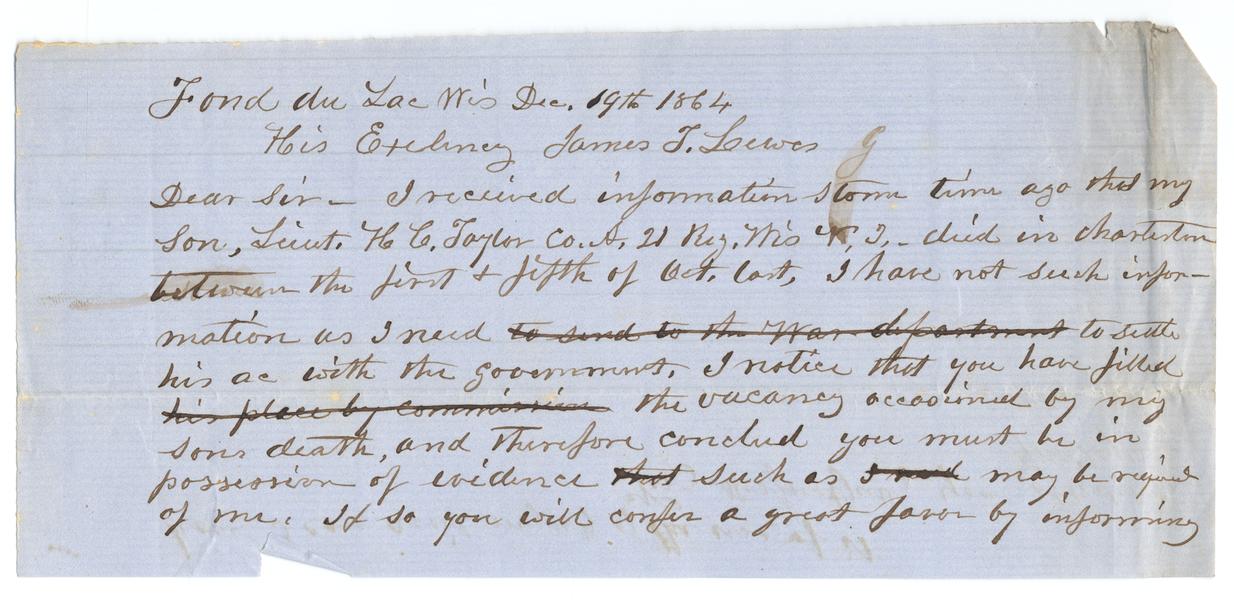 Fond du Lac Wis Dec. 19th 1864
His Exelency James T. Lewes
Dear Sir - I received information some time ago that my
Son, Lieut. H C, Taylor Co. A, 21 Reg. Wis V. I, - died in charleston
between the first & fifth of Oct. last, I have not such infor-
mation as I need to send to the War department to settle
his ac with the government. I notice that you have filled
his place by commission the vacancy occasioned by my
sons death, and therefore conclud you must be in
possession of evidence that such as I need may be reqired
of me. If so you will confer a great favor by informing